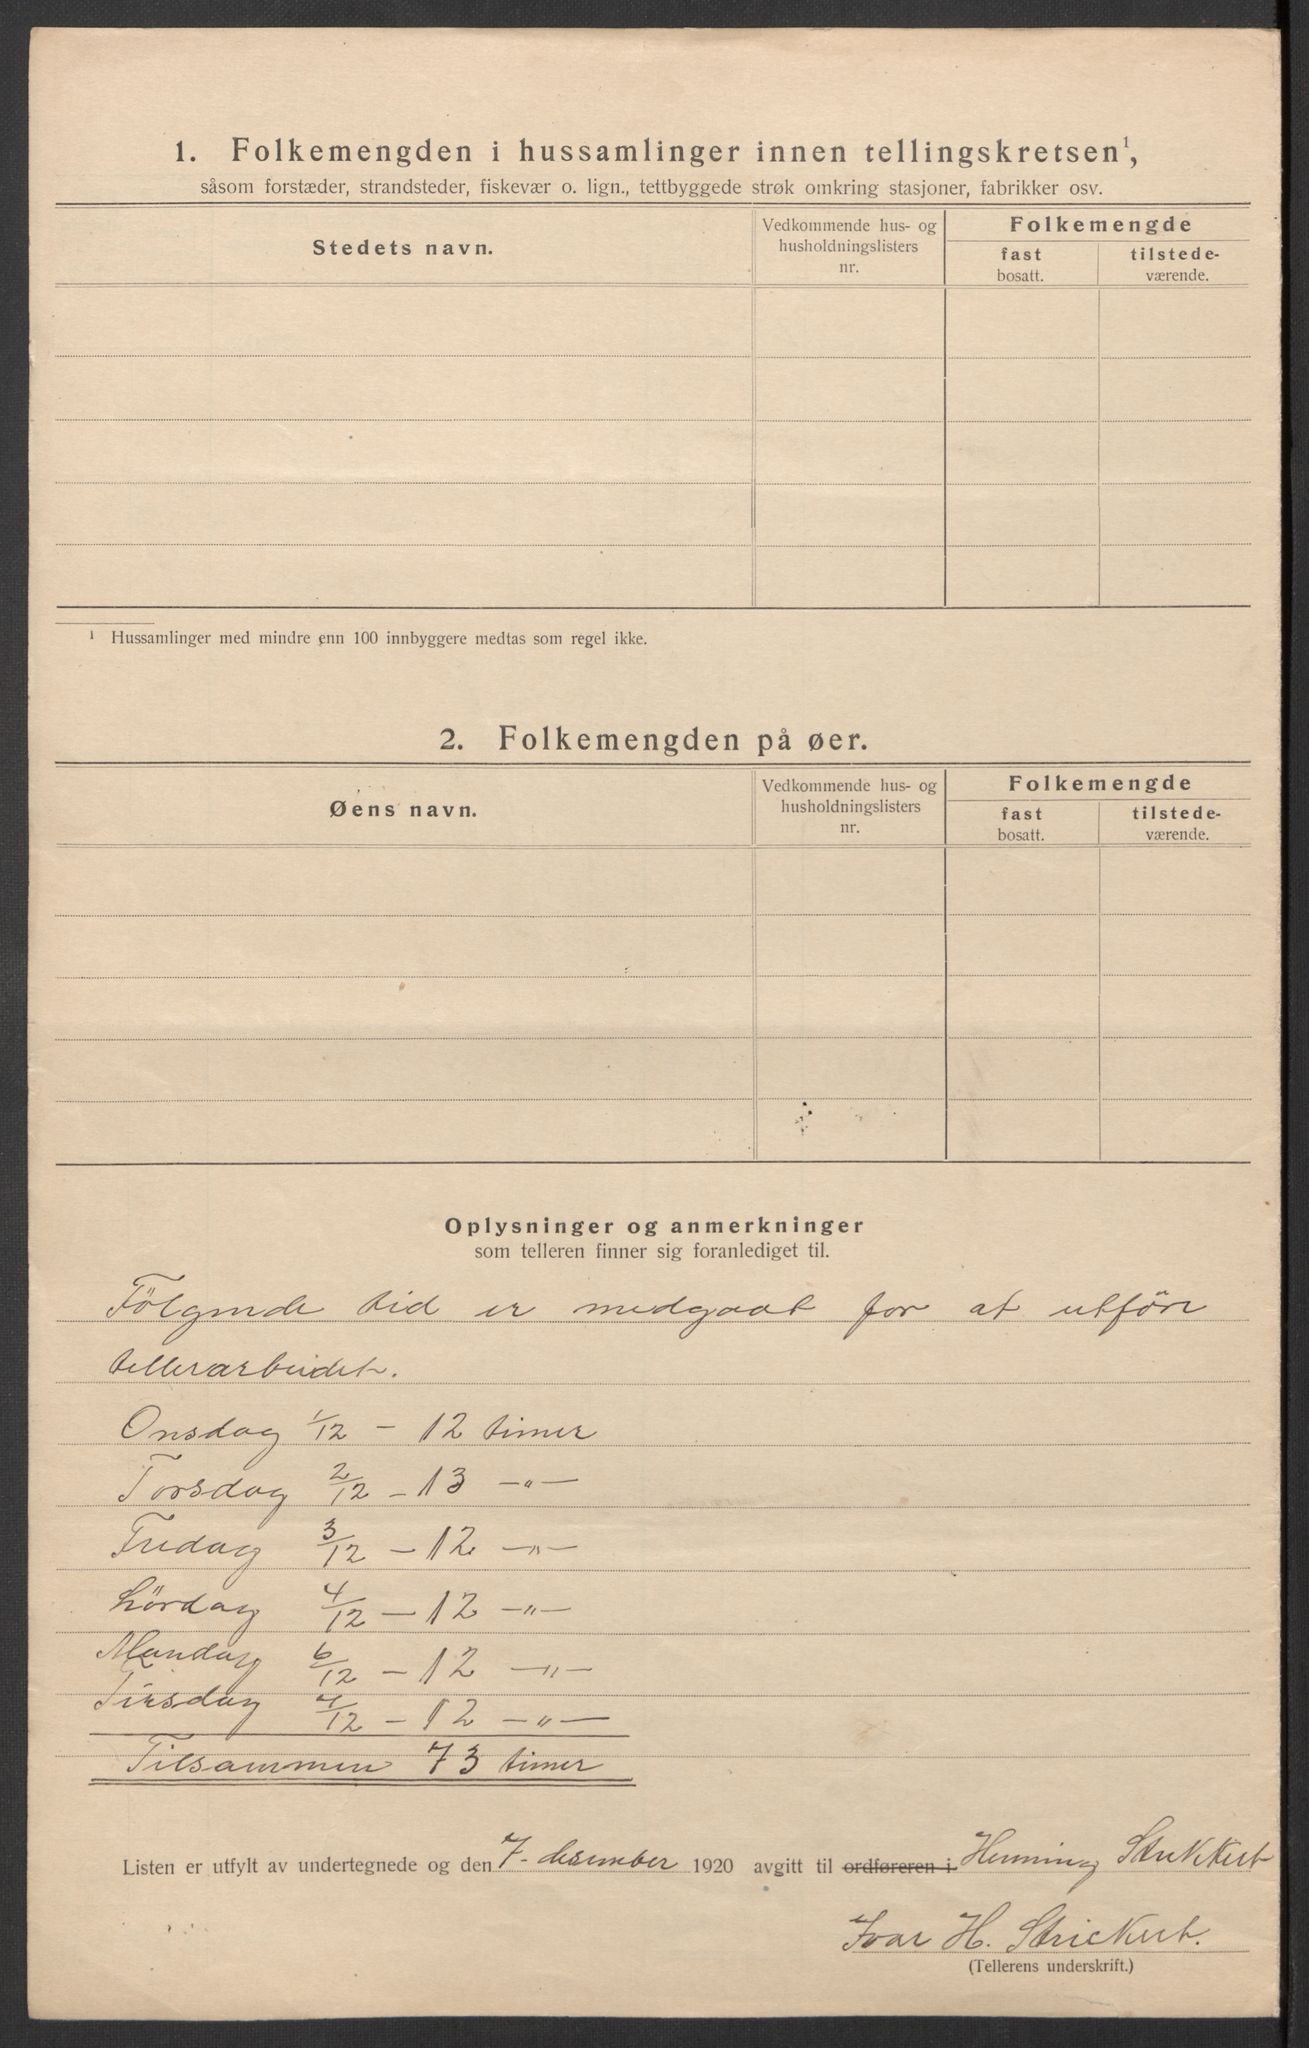 1. Folkemengden i hussamlinger innen tellingskretsen¹,
såsom forstæder, strandsteder, fiskevær o. lign., tettbyggede strøk omkring stasjoner, fabrikker osv.
Stedets navn.
Vedkommende hus- og
husholdningslisters
nr.
Folkemengde
fast
bosatt.
tilstede-
værende.
¹ Hussamlinger med mindre enn 100 innbyggere medtas som regel ikke.
2. Folkemengden på øer.
Øens navn.
Vedkommende hus- og
husholdningslisters
nr.
Folkemengde
fast
bosatt.
tilstede-
værende.
Oplysninger og anmerkninger
som telleren finner sig foranlediget til.
Fölgende tid er medgaat for at utföre
tellerarbeidet.
Onsdag 1/12 – 12 timer
Torsdag 2/12 – 13 –„–
Fredag 3/12 – 12 –„–
Lördag 4/12 – 12 –„–
Mandag 6/12 – 12 –„–
Tirsdag 7/12 – 12 –„–
Tilsammen 73 timer
Listen er utfylt av undertegnede og den 7. desember 1920 avgitt til ordføreren i Henning Strickert
Ivar H. Strickert.
(Tellerens underskrift.)